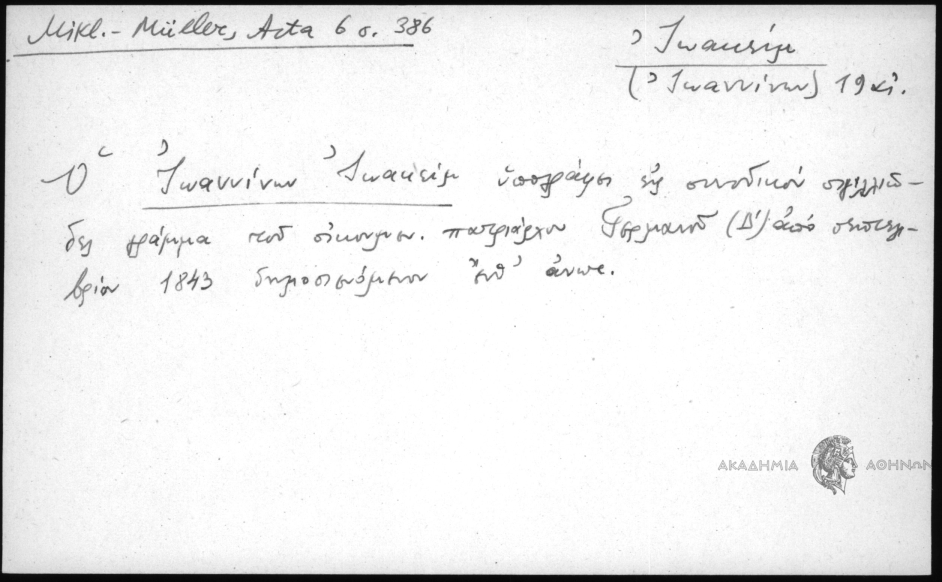 Mikl.- Müller, Acta 6 σ. 386
Ἰωακείμ
(Ἰωαννίνων) 19 αἰ.
Ὁ Ἰωαννίνων Ἰωακείμ ὑπογράφει εἰς συνοδικόν σιγιλλιῶ-
δες γράμμα τοῦ οἰκουμεν. πατριάρχου Γερμανοῦ (Δ') ἀπό σεπτεμ-
βρίου 1843 δημοσιευόμενον ἔνθ' ἀνωτ.
ΑΚΑΔΗΜΙΑ ΑΘΗΝΩΝ